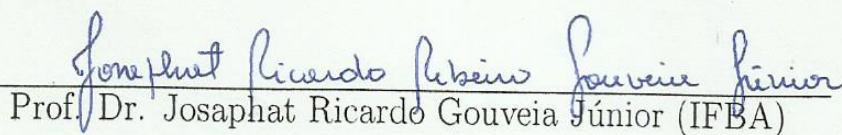 Josaphat Ricardo Ribeiro Gouveia Júnior
Prof. Dr. Josaphat Ricardo Gouveia Júnior (IFBA)